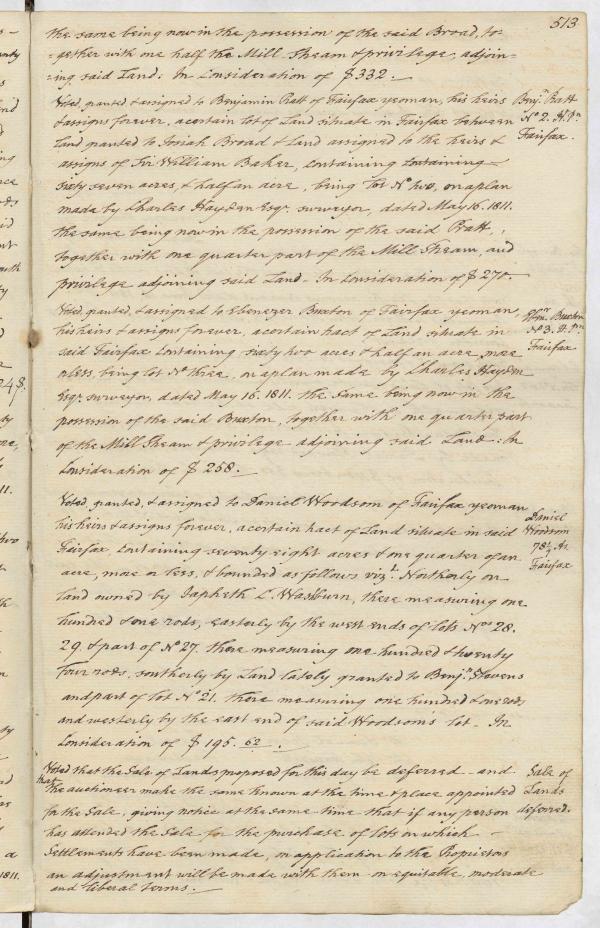 513
the same being now in the possession of the said Broad, to-
-gether with one half the Mill Stream & privilege, adjoin-
-ing said Land: In Consideration of $332.
Voted, granted & assigned to Benjamin Pratt of Fairfax yeoman, his heirs
& assigns forever, a certain lot of Land situate in Fairfax between
Land granted to Josiah Broad & Land assigned to the heirs &
assigns of Sir William Baker, Containing Containing
sixty seven acres, & half an acre, being lot No two, on a plan
made by Charles Hayden Esqr. surveyor, dated May 16. 1811.
the same being now in the possession of the said Pratt,
together with one quarter part of the Mill Stream, and
privilege adjoining said Land - In Consideration of $270.
Benjn Pratt
No 2. H. Pn
Fairfax.
Voted, granted, & assigned to Ebenezer Buxton of Fairfax yeoman,
his heirs & assigns forever, a certain tract of Land situate in
said Fairfax Containing sixty two acres & half an acre more
or less, being lot No three, on a plan made by Charles Hayden
Esqr. surveyor, dated May 16. 1811. the same being now in the
possession of the said Buxton, together with one quarter part
of the Mill Stream & privilege adjoining said Land: In
Consideration of $258.
Buxton
No 3. H. Pn
Fairfax
Voted, granted, & assigned to Daniel Woodsom of Fairfax yeoman
his heirs & assigns forever, a certain tract of Land situate in said
Fairfax, Containing seventy eight acres & one quarter of an
acre, more or less, & bounded as follows vizt. Northerly on
land owned by Japheth C. Washburn, there measuring one
hundred & one rods, easterly by the west ends of lots Nos 28.
29. & part of No 27. there measuring one hundred & twenty
four rods, southerly by Land lately granted to Benjn Stevens
and part of lot No 21. there measuring one hundred & one rods
and westerly by the east end of said Woodsoms lot. In
Consideration of $195. 62.
Daniel
Woodsom
78¼ As
Fairfax
Voted that the Sale of Lands proposed for this day be deferred - and
that the auctioneer make the same known at the time & place appointed
for the Sale, giving notice at the same time that if any person
has attended the Sale for the purchase of lots on which
Settlements have been made, on application to the Proprietors
an adjustment will be made with them on equitable, moderate
and liberal terms.
Sale of
Lands
deferred.